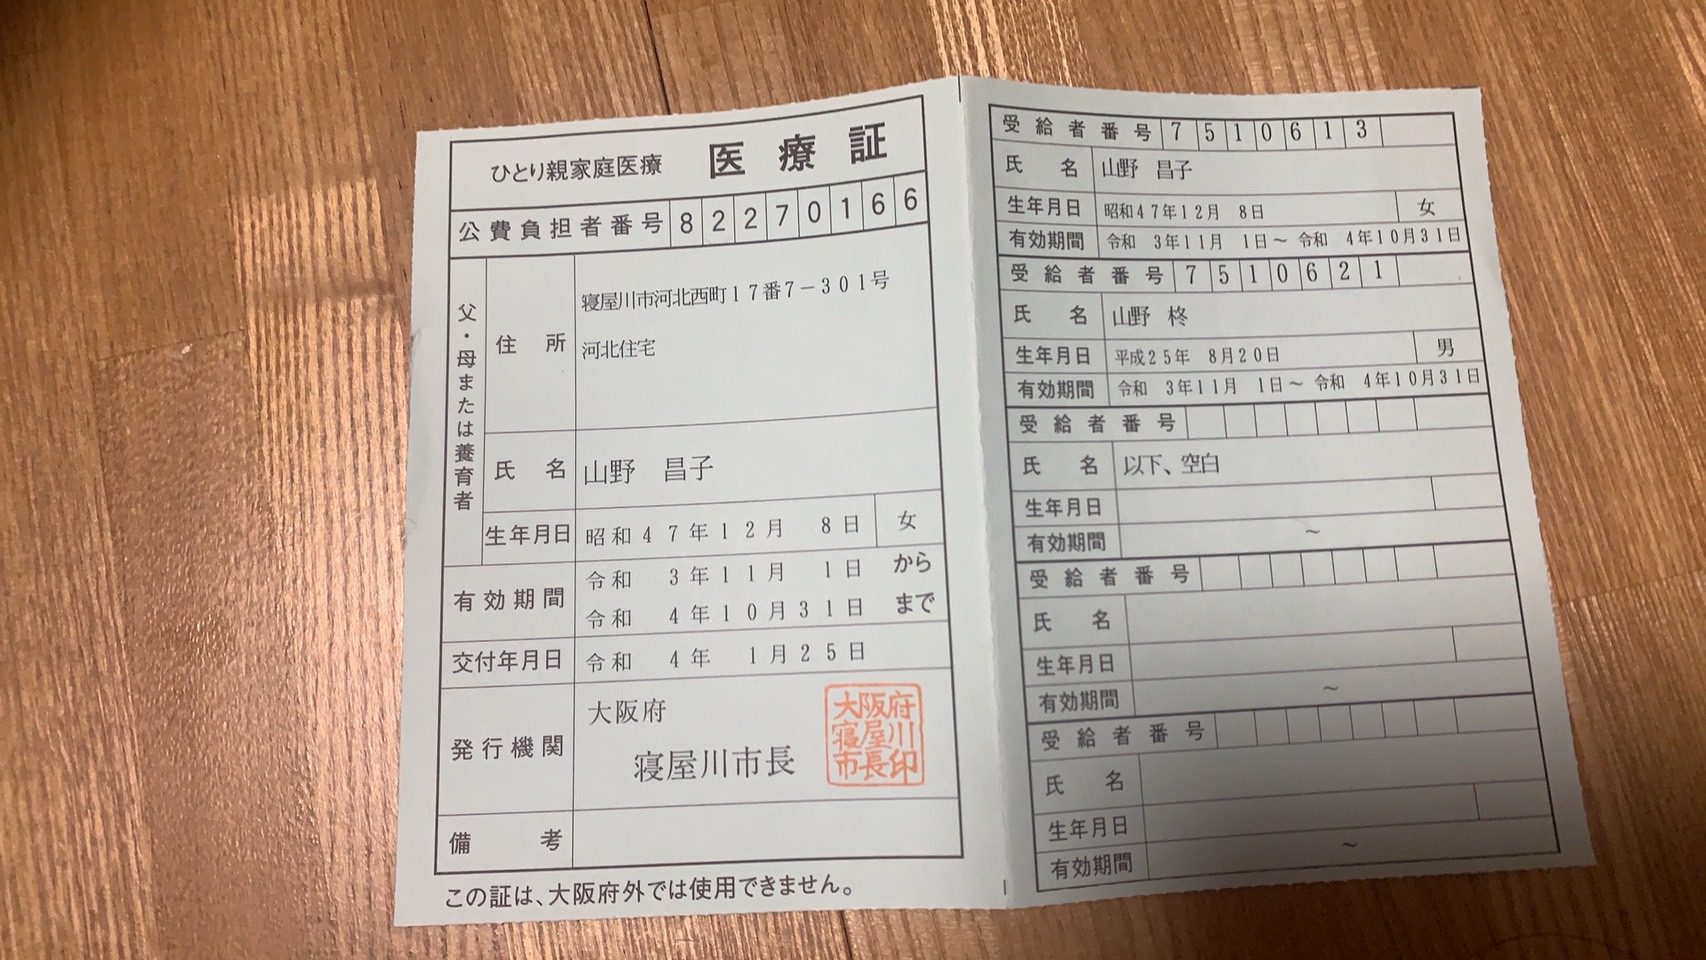 ひとり親家庭医療 医療証
公費負担者番号 82270166
父・母または養育者
住所 寝屋川市河北西町17番7-301号
河北住宅
氏名 山野 昌子
生年月日 昭和47年12月 8日 女
有効期間 令和 3年11月 1日 から
令和 4年10月31日 まで
交付年月日 令和 4年 1月25日
発行機関 大阪府
寝屋川市長
大阪府
寝屋川
市長印
備考
この証は、大阪府外では使用できません。
受給者番号 7510613
氏名 山野 昌子
生年月日 昭和47年12月 8日 女
有効期間 令和 3年11月 1日~令和 4年10月31日
受給者番号 7510621
氏名 山野 柊
生年月日 平成25年 8月20日 男
有効期間 令和 3年11月 1日~令和 4年10月31日
受給者番号
氏名 以下、空白
生年月日
有効期間 ~
受給者番号
氏名
生年月日
有効期間 ~
受給者番号
氏名
生年月日
有効期間 ~